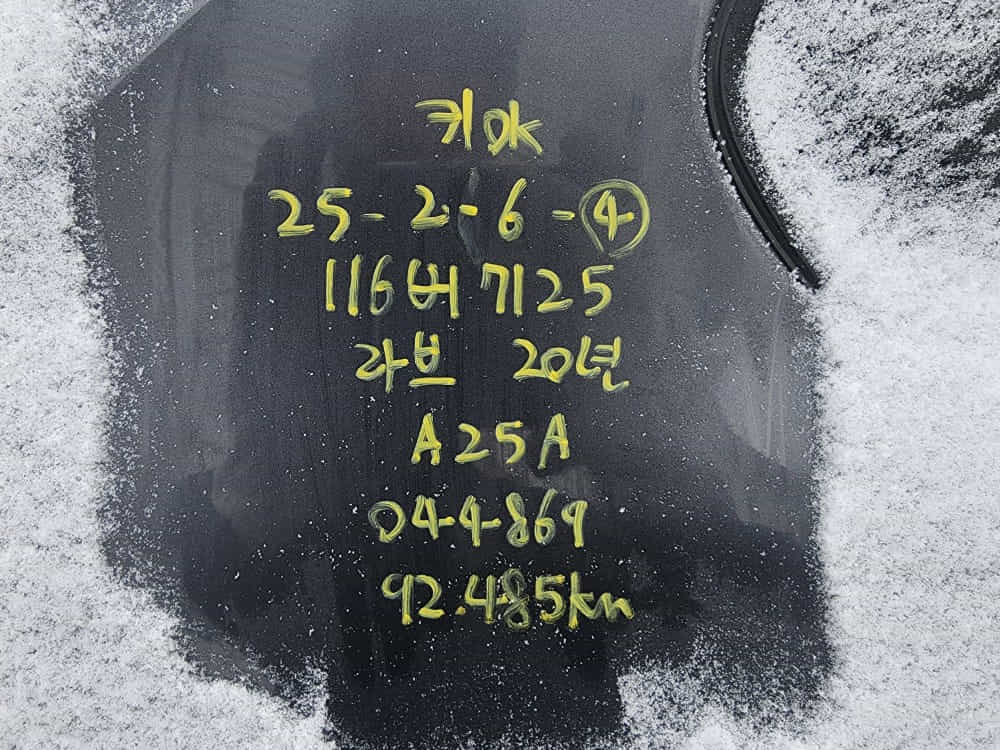 키 OK
25-2-6-④
116버 7125
라브 20년
A25A
044869
92.485km